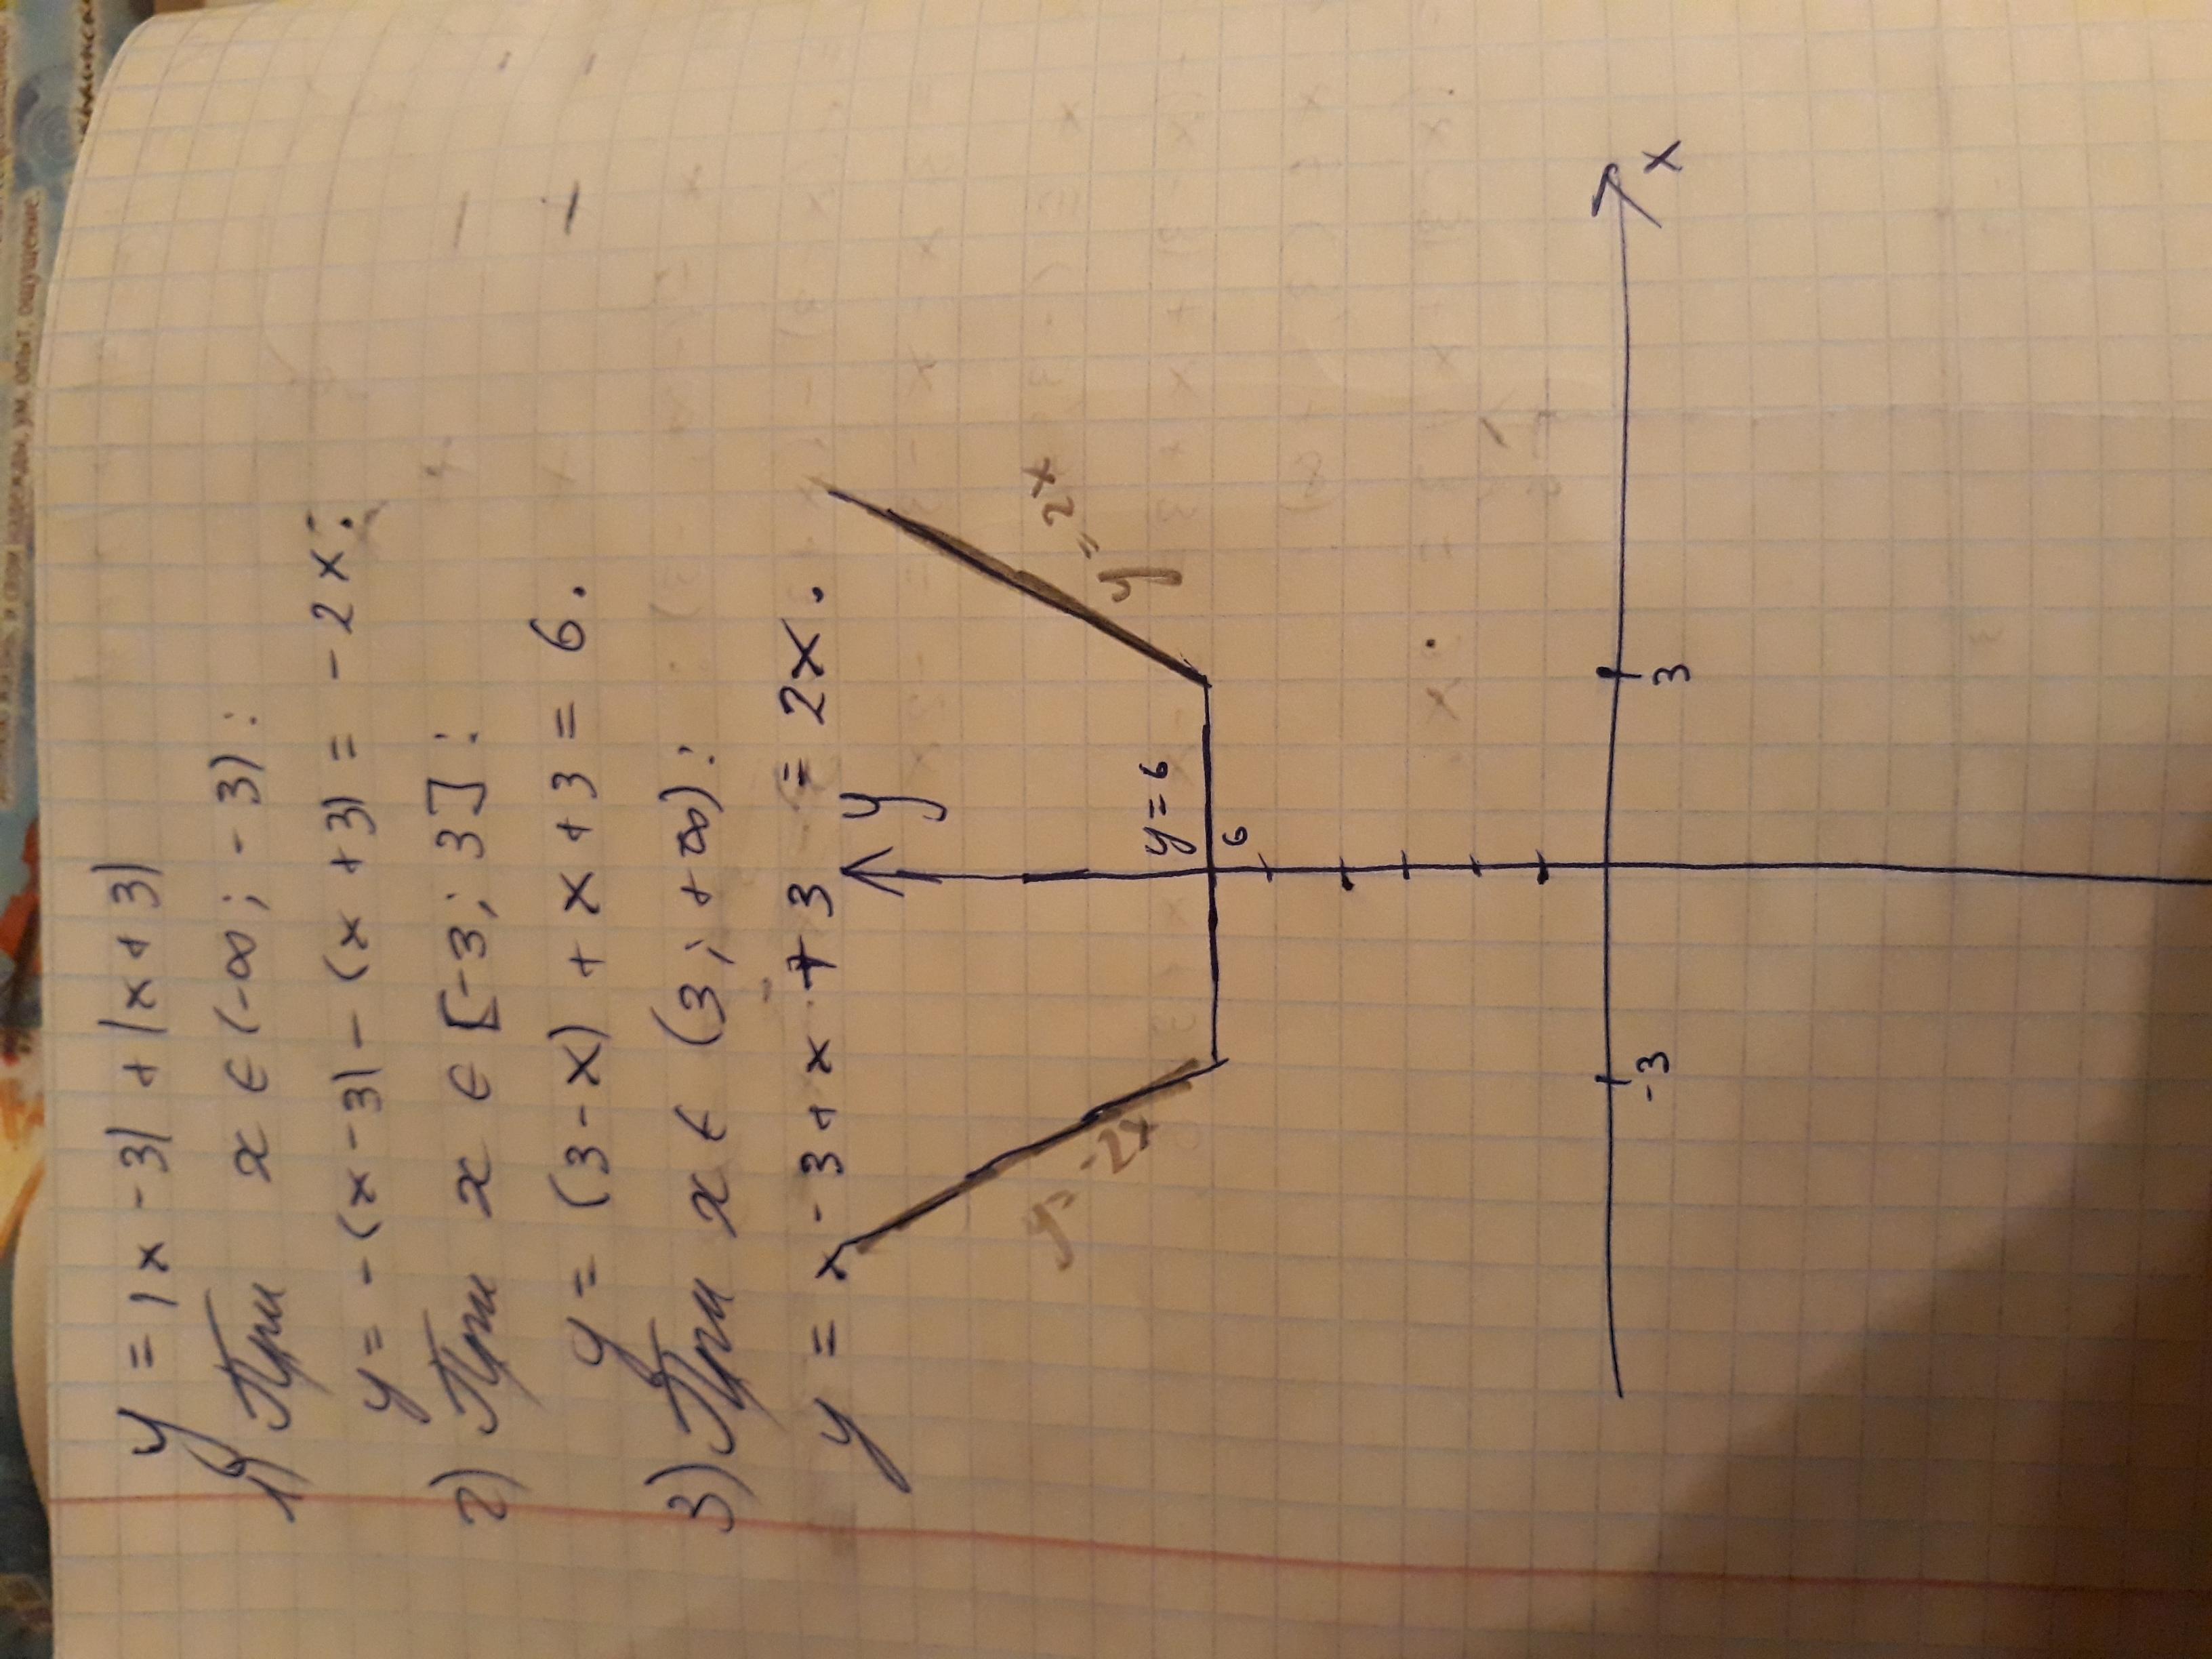 y = |x - 3| + |x + 3|
1) При x ∈ (-∞; -3):
y = -(x - 3) - (x + 3) = -2x;
2) При x ∈ [-3; 3]:
y = (3 - x) + x + 3 = 6.
3) При x ∈ (3; +∞):
y = x - 3 + x + 3 = 2x.
y
y = -2x
y = 6
y = 2x
6
-3
3
x
надежды, ум, опыт, ощущение.